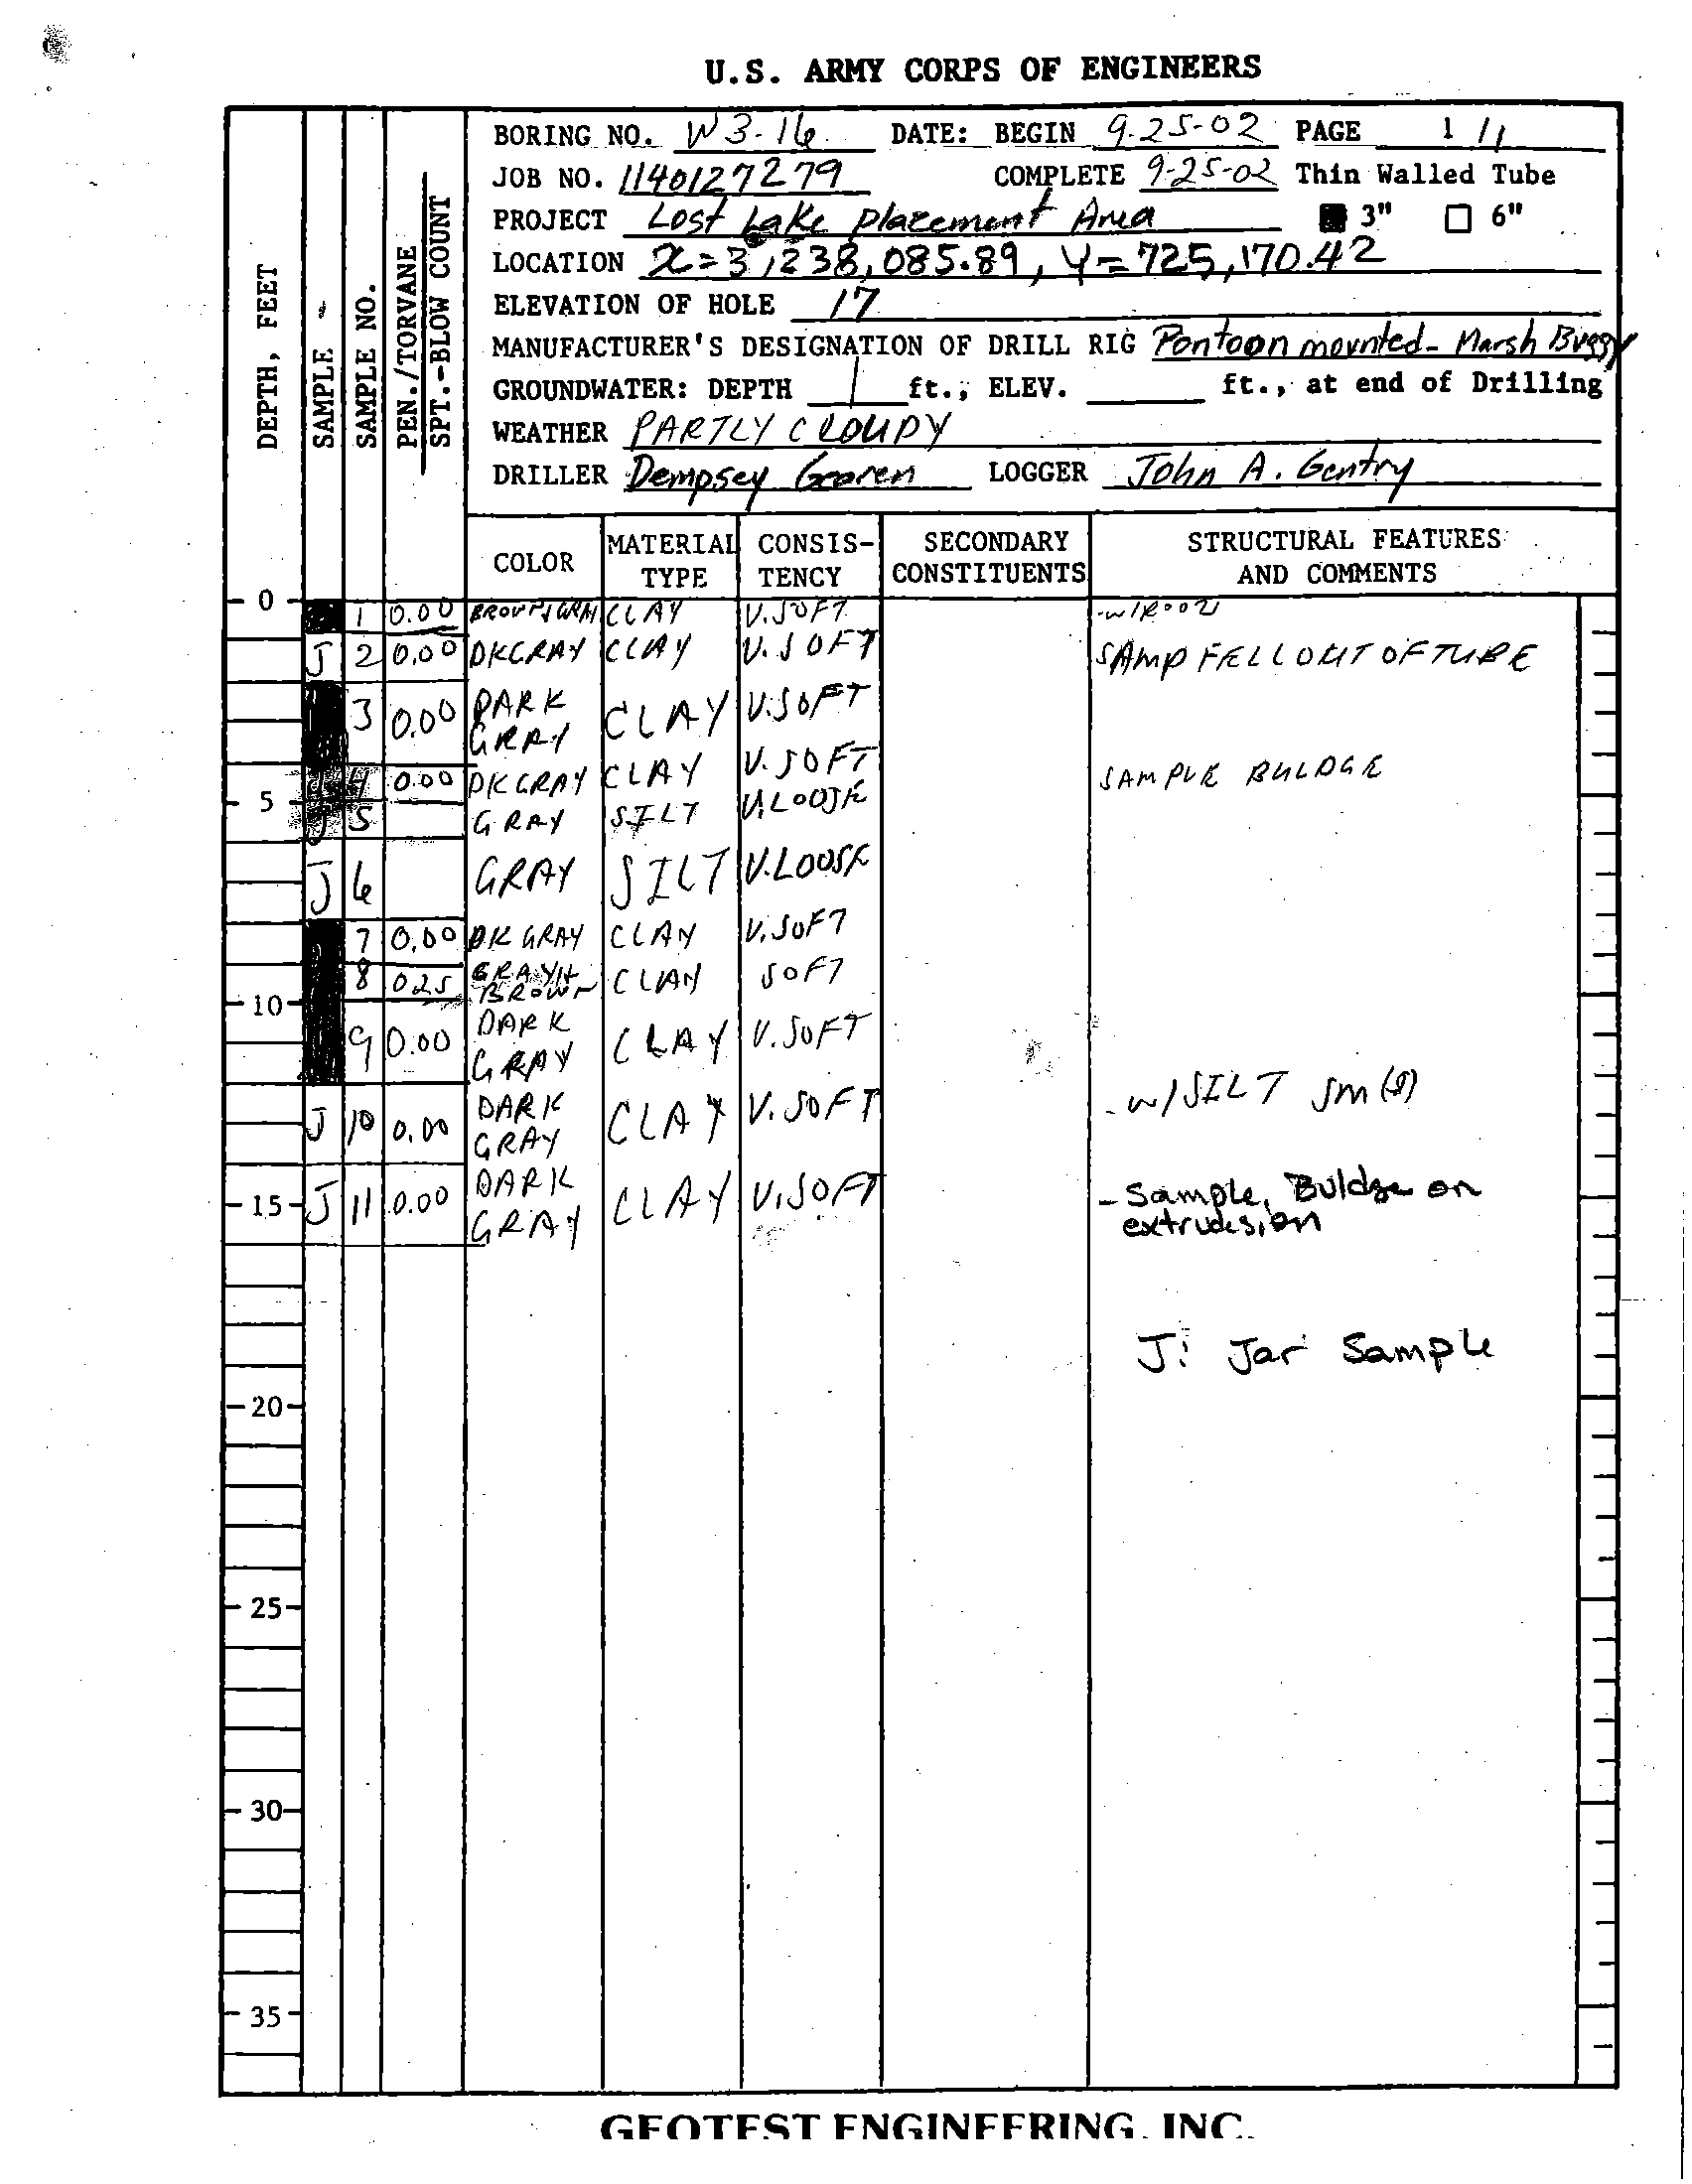 U.S. ARMY CORPS OF ENGINEERS
BORING NO. W3-16 DATE: BEGIN 9-25-02 PAGE 1/1
JOB NO. 1140127279 COMPLETE 9-25-02 Thin Walled Tube
PROJECT Lost Lake Placement Area 3" 6"
LOCATION X=3,238,085.89, Y=725,170.42
ELEVATION OF HOLE 17
MANUFACTURER'S DESIGNATION OF DRILL RIG Pontoon mounted - Marsh Buggy
GROUNDWATER: DEPTH ft.; ELEV. ft., at end of Drilling
WEATHER PARTLY CLOUDY
DRILLER Dempsey LOGGER John A. Gentry
DEPTH, FEET
SAMPLE
SAMPLE NO.
PEN./TORVANE
SPT.-BLOW COUNT
COLOR MATERIAL TYPE CONSIS-TENCY SECONDARY CONSTITUENTS STRUCTURAL FEATURES AND COMMENTS
0 1 0.00 CLAY V.SOFT
J 2 0.00 DKGRAY CLAY V.SOFT SAMP FELL OUT OF TUBE
3 0.00 DARK GRAY CLAY V.SOFT
4 0.00 DKGRAY CLAY V.SOFT SAMPLE BULDGE
5 J 5 GRAY SILT V.LOOSE
J 6 GRAY SILT V.LOOSE
7 0.00 DK GRAY CLAY V.SOFT
8 025 BROWN CLAY SOFT
10
9 0.00 DARK GRAY CLAY V.SOFT
J 10 0.00 DARK GRAY CLAY V.SOFT - w/SILT
15 J 11 0.00 DARK GRAY CLAY V.SOFT - Sample, Buldge on
extrudesion
J: Jar Sample
20
25
30
35
GEOTEST ENGINEERING, INC.